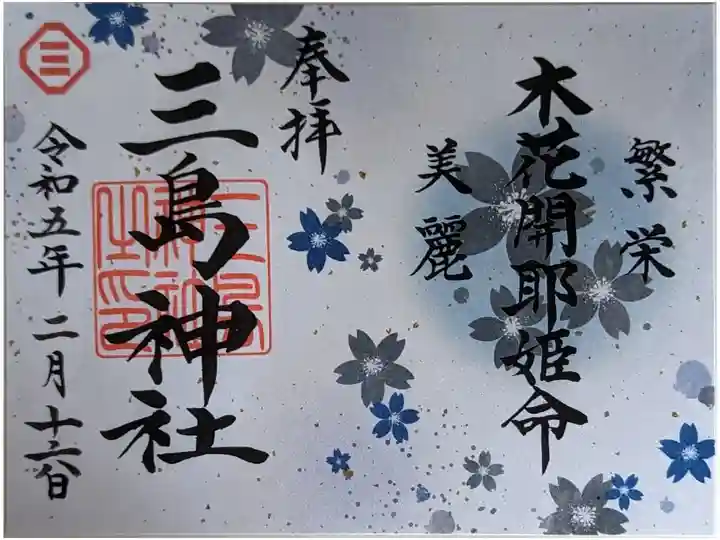 繁栄
木花開耶姫命
美麗
奉拝
三島神社
令和五年二月十三日
三
三島神社之印